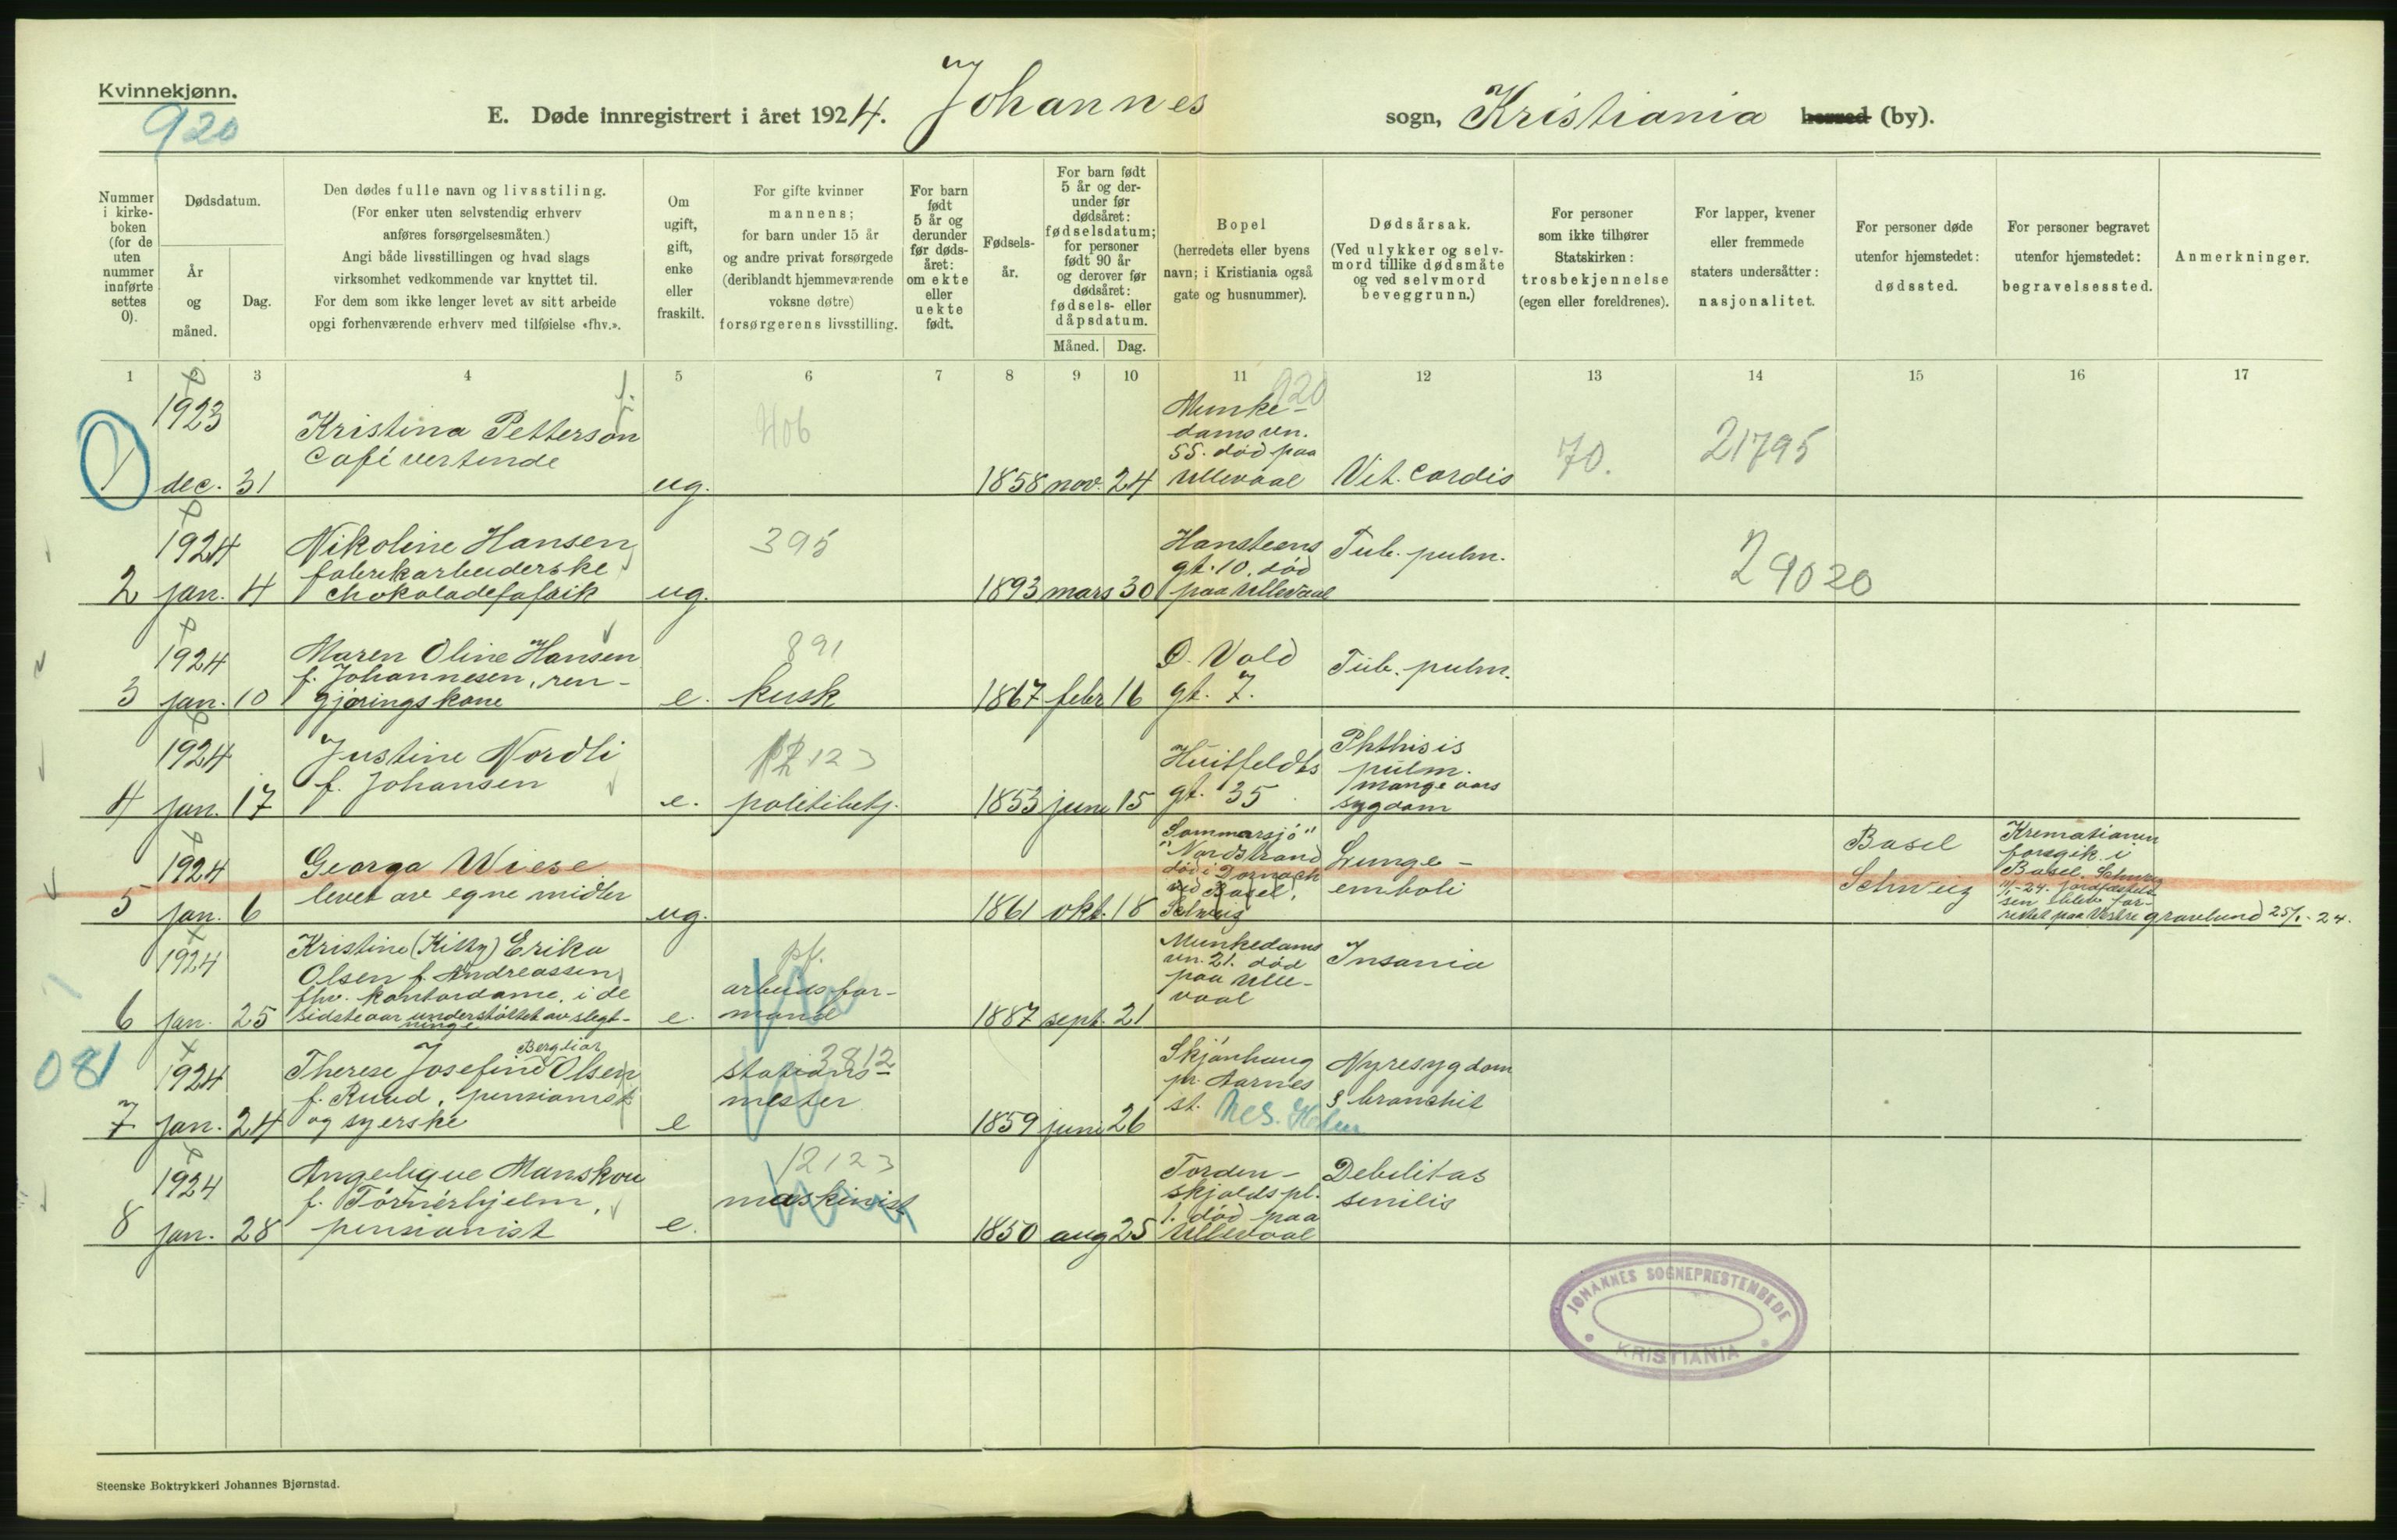 Kvinnekjønn.
920
E. Døde innregistrert i året 1924. Johannes sogn, Kristiania herred (by).
Nummer i kirkeboken (for de uten nummer innførte settes 0).
Dødsdatum.
År og måned.
Dag.
Den dødes fulle navn og livsstiling.
(For enker uten selvstendig erhverv
anføres forsørgelsesmåten.)
Angi både livsstillingen og hvad slags
virksomhet vedkommende var knyttet til.
For dem som ikke lenger levet av sitt arbeide
opgi forhenværende erhverv med tilføielse «fhv.».
Om ugift, gift, enke eller fraskilt.
For gifte kvinner
mannens;
for barn under 15 år
og andre privat forsørgede
(deriblandt hjemmeværende
voksne døtre)
forsørgerens livsstilling.
For barn født 5 år og derunder før dødsåret: om ekte eller uekte født.
Fødselsår.
For barn født
5 år og der-
under før
dødsåret:
fødselsdatum;
for personer
født 90 år
og derover før
dødsåret:
fødsels- eller
dåpsdatum.
Måned.
Dag.
Bopel
(herredets eller byens
navn; i Kristiania også
gate og husnummer).
Dødsårsak.
(Ved ulykker og selv-
mord tillike dødsmåte
og ved selvmord
beveggrunn.)
For personer
som ikke tilhører
Statskirken:
trosbekjennelse
(egen eller foreldrenes).
For lapper, kvener
eller fremmede
staters undersåtter:
nasjonalitet.
For personer døde
utenfor hjemstedet:
dødssted.
For personer begravet
utenfor hjemstedet:
begravelsessted.
Anmerkninger.
1 2 3 4 5 6 7 8 9 10 11 12 13 14 15 16 17
1 1923 dec. 31
Kristina Petterson
Café vertinde
ug.
406
1858 nov. 24
920
Munke-
damsvn.
55. død paa
Ullevaal
Vit. cordis
70.
21795
2 1924 jan. 4
Nikoline Hansen
fabrikarbeiderske
chokoladefabrik
ug.
395
1893 mars 30
Hansteens
gt. 10. død
paa Ullevaal
Tub. pulm.
29020
3 1924 jan. 10
Maren Oline Hansen
f. Johannesen, ren-
gjøringskone
e.
891
kusk
1867 febr 16
O. Vold
gt. 7.
Tub. pulm.
4 1924 jan. 17
Justine Nordli
f. Johansen
e.
12123
politibetj.
1853 juni 15
Huitfeldts
gt. 35
Phthisis
pulm.
mange aars
sygdom
5 1924 jan. 6
Georga Wiese
levet av egne midler
ug.
1861 okt. 18
Sommersjø"
"Nordstrand
død i Dornach
ved Basel,
Schweiz
Lunge-
emboli
Basel
Schweiz
Kremationen
foregik i
Basel. Schweiz
11/1-24. jordfæstel-
sen blev for-
rettet paa Vestre gravlund 25/1-24.
6 1924 jan. 25
Kristine (Kitty) Erika
Olsen f. Andreassen,
fhv. kontordame, i de
sidste aar understøttet av slegt-
ninge
e.
pf.
arbeidsfor-
mand
1887 sept. 21
Munkedams
vn. 21. død
paa Ulle-
vaal
Insania
081
7 1924 jan. 24
Bergliot
Therese Josefine Olsen
f. Ruud, pensionist
og syerske
e
3812
stations-
mester
1859 juni 26
Skjønhaug
pr. Aarnes
st. Nes. Hedm
Nyresygdom
& bronchit
8 1924 jan. 28
Angelique Manskou
f. Törnerhjelm,
pensionist
e.
12123
maskinist
1850 aug 25
Torden-
skjolds pl.
1. død paa
Ullevaal
Debilitas
senilis
JOHANNES SOGNEPRESTEMBEDE
KRISTIANIA
Steenske Boktrykkeri Johannes Bjørnstad.